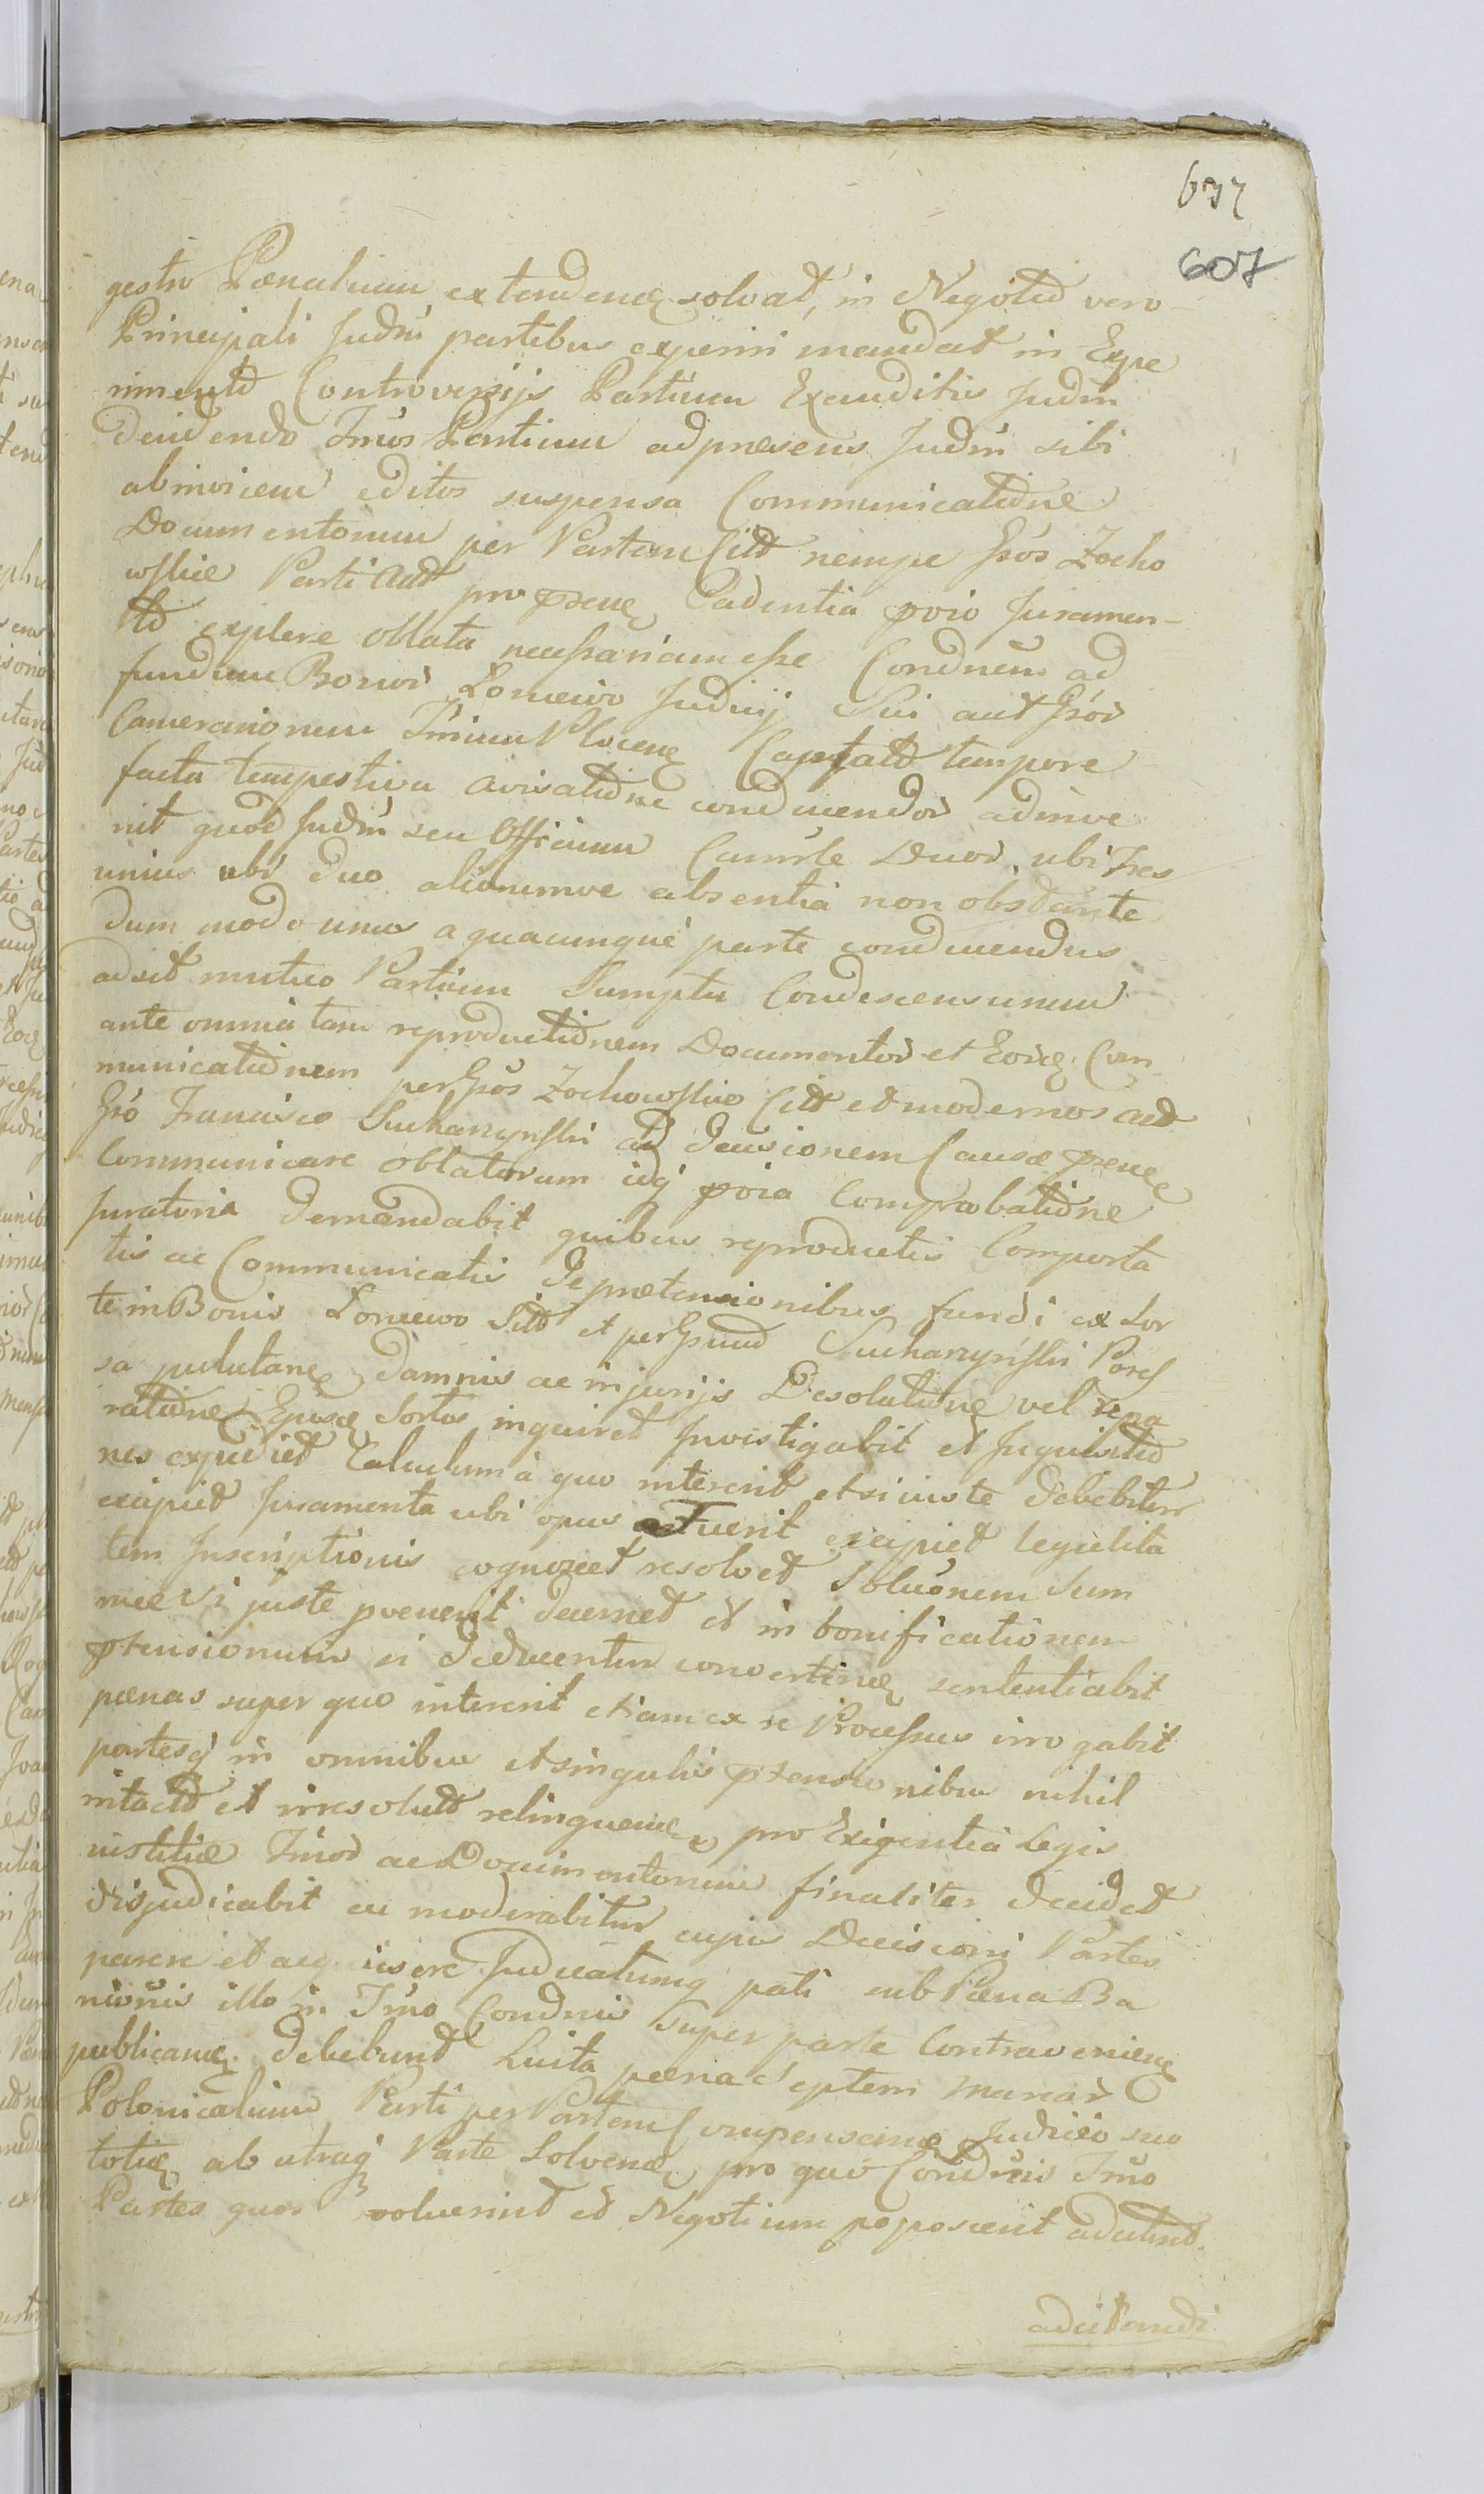 637
607
gestro Poenalium extendenę solvat, in Negotio vero
Principali Judm partibus experiri mandat in Expe
rimento Controversijs Partium Exauditis Judm
decidendo Tmos Partium ad praesens Judm sibi
abinvicem editos suspensa Communicatione
Documentorum per Partem Citt nempe Gsos Zocho
wskie Parti Act pro Cadentia Juramen-
to explere oblata necessariam esse Condnem ad
fundum Bonor Judicij Sui aut Gsor
Camerariorum Trium Plocenę Captato tempore
facta tempestiva avisatione conducendor adinve
nit quod Judm seu Officium Camrle Duor, ubi Tres
unius ubi duo aliorumve absentia non obstante
dum modo unus a quacunque parte conducendus
adsit mutuo Partium Sumptu Condescensurum
ante omnia tam reproductionem Documentor et Eorę Com
municationem per Gsos Zochowskie Citt et modernos act
Gso Francisco Sucharzynski ad decisionem Causae
Communicare oblatorum idq Comprobatione
Juratoria demandabit quibus reproductis Comporta
tis ac Communicatis de praetensionibus fundi ex Sor
te in Bonis Citt et per Gsum Sucharzynski Poss
sa damnis ac injurijs Desolatione vel repa
ratione Ejusę Sortis inquiret Investigabit et Inquisitio
nes expediet Calculum a quo intererit et si iuste debebitur
excipiet Juramenta ubi opus Fuerit excipiet legalita
tem Inscriptionis cognoscet resolvet Solutionem Sum
mae si juste provenerit decernet et in bonificationem
ptensionum si deducentur convertenę sententiabit
poenas super quo intererit etiam ex re Processus irrogabit
partesq in omnibus et singulis ptensionibus nihil
intacto et irresoluto relinquenę pro Exigentia Legis
iustitiae Tmor ac Documentorum finaliter decidet
disjudicabit ac moderabitur cujus Decisioni Partes
parere et acquiescere Judicatumq pati sub Poena Ba
nionis illo in Tmo Condnis super parte Contravenienę
publicanę debebunt Luita poena Septem Marcar
Polonicalium Parti per Partem Judicio suo
totię ab utraq Parte Solvenę pro quo Condnis Tmo
Partes quos voluerint et Negotium poposcerit adcitent.
adcitandi